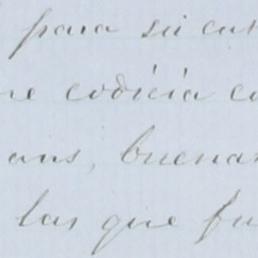 para su cul
re codicia co
ans, buenas
las que fu